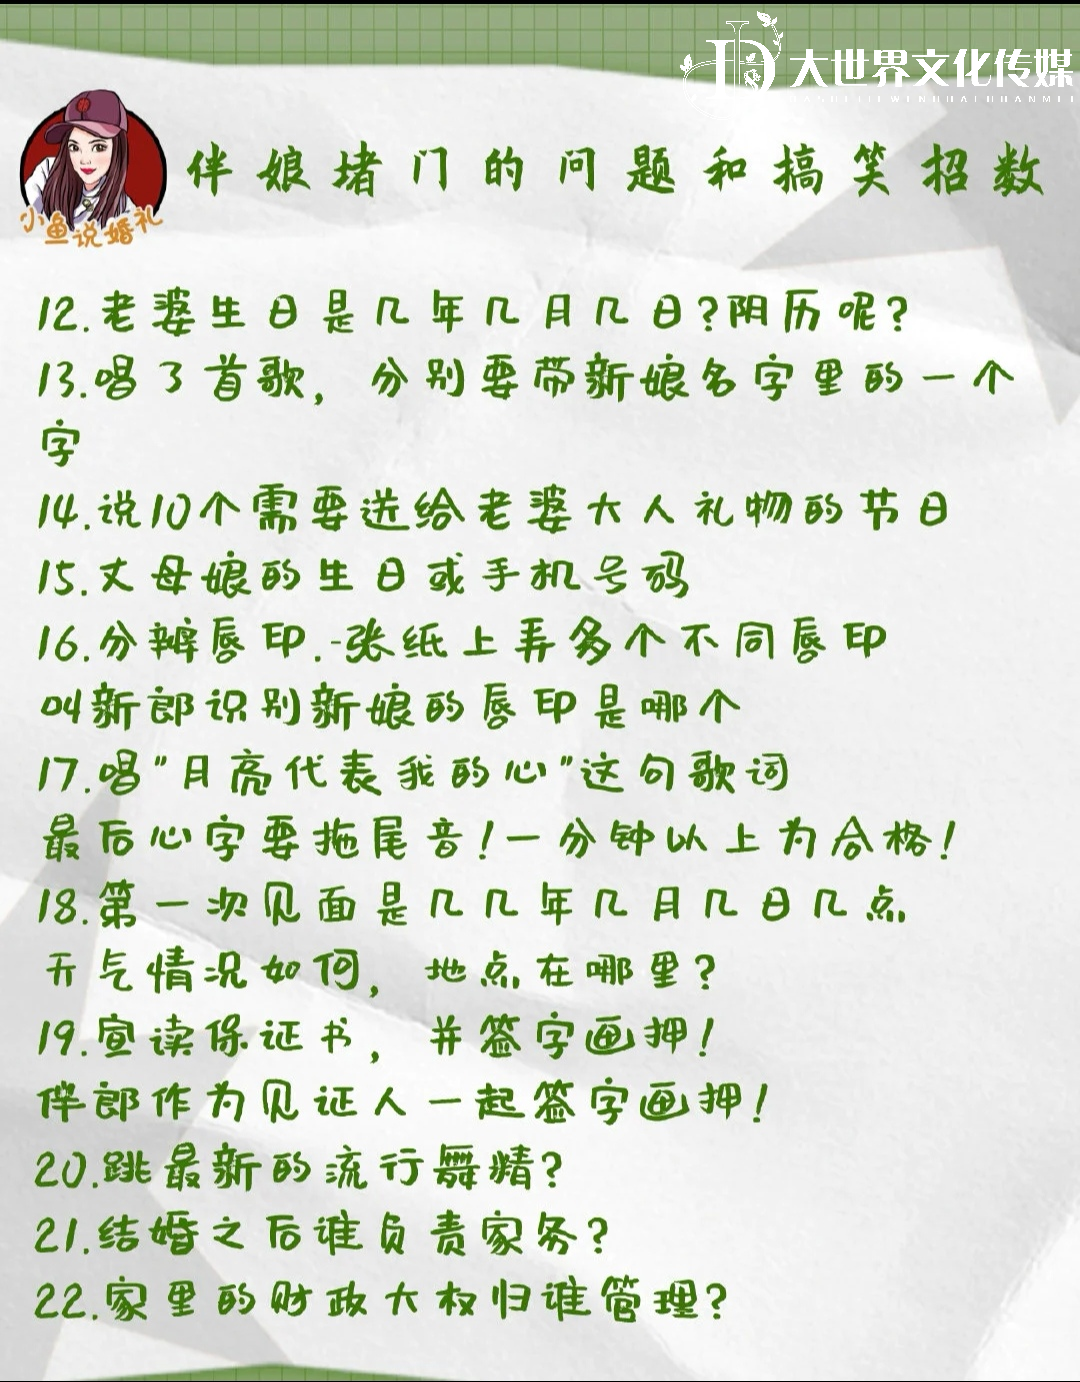 大世界文化传媒
DASHIJIEWENHUACHUANMEI
小鱼说婚礼
伴娘堵门的问题和搞笑招数
12.老婆生日是几年几月几日?阴历呢?
13.唱3首歌，分别要带新娘名字里的一个
字
14.说10个需要送给老婆大人礼物的节日
15.丈母娘的生日或手机号码
16.分辨唇印.-张纸上弄多个不同唇印
叫新郎识别新娘的唇印是哪个
17.唱"月亮代表我的心"这句歌词
最后心字要拖尾音!一分钟以上为合格!
18.第一次见面是几几年几月几日几点
天气情况如何，地点在哪里?
19.宣读保证书，并签字画押!
伴郎作为见证人一起签字画押!
20.跳最新的流行舞精?
21.结婚之后谁负责家务?
22.家里的财政大权归谁管理?